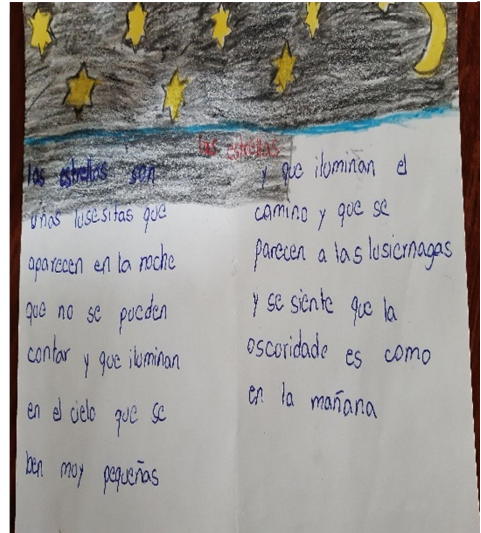 las estrellas
las estrellas son
uñas lusesitas que
aparecen en la noche
que no se pueden
contar y que iluminan
en el cielo que se
ben muy pequeñas
y que iluminan el
camino y que se
parecen a las lusiernagas
y se siente que la
oscuridade es como
en la mañana